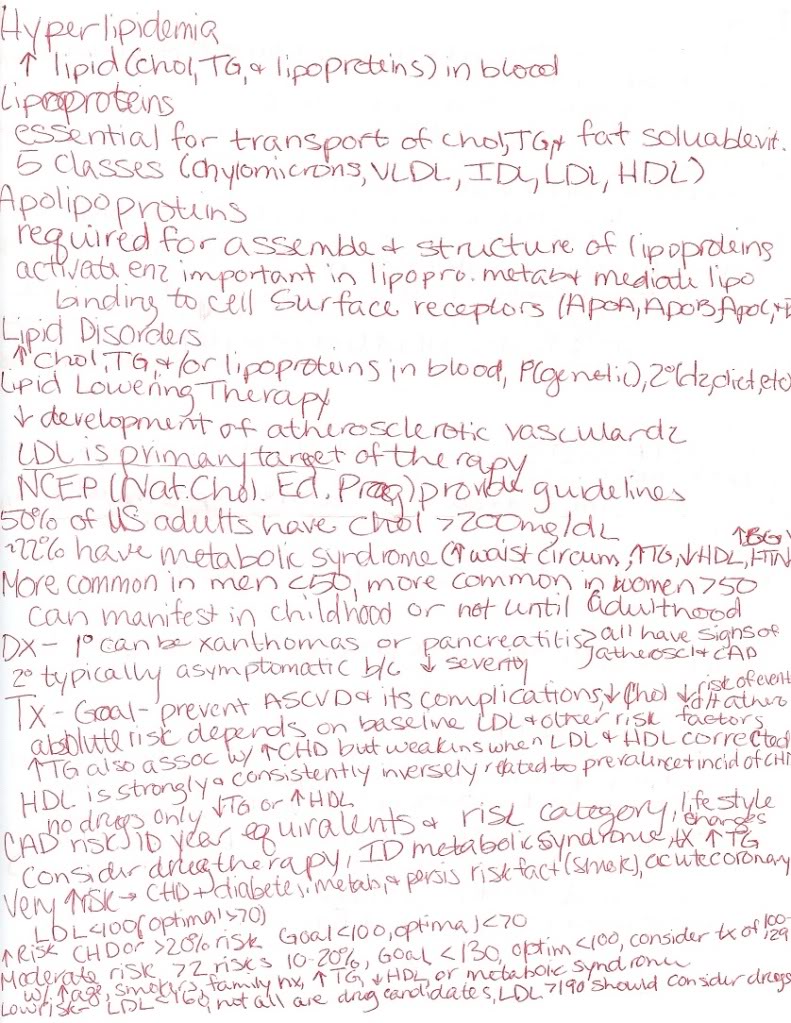 Hyperlipidemia
↑ lipid (chol, TG, & lipoproteins) in blood
Lipoproteins
essential for transport of chol, TG, & fat soluable vit.
5 classes (chylomicrons, VLDL, IDL, LDL, HDL)
Apolipoproteins
required for assemble & structure of lipoproteins
activate enz important in lipopro. metab & mediate lipo
binding to cell surface receptors (ApoA, ApoB, ApoC, +
Lipid Disorders
↑ Chol, TG, &/or lipoproteins in blood, P(genetic), 2°(dz, diet, etc)
Lipid Lowering Therapy
↓ development of atherosclerotic vascular dz
LDL is primary target of therapy
NCEP (Nat. Chol. Ed. Prog) provide guidelines
50% of US adults have chol >200mg/dL
~22% have metabolic syndrome (↑ waist circum, ↑TG, ↓HDL, HTN ↑BG)
More common in men <50, more common in women >50
can manifest in childhood or not until adulthood
DX - 1° can be xanthomas or pancreatitis > all have signs of
2° typically asymptomatic b/c ↓ severity atheroscl & CAD
TX - Goal - prevent ASCVD & its complications, ↓ chol ↓ risk of event
absolute risk depends on baseline LDL & other risk factors
↑TG also assoc w/ ↑CHD but weakens when LDL & HDL corrected
HDL is strongly & consistently inversely related to prevalunce & incid of CHD
no drugs only ↓TG or ↑HDL
CAD risk, 10 year equivalents & risk category, lifestyle changes
Consider drug therapy, ID metabolic syndrome, tx ↑TG
Very ↑risk → CHD + diabetes, metab, & persis risk fact (smok), acute coronary
LDL <100 (optimal >70)
↑Risk CHD or >20% risk Goal <100, optimal <70
consider tx of 100-129
Moderate risk >2 risks 10-20%, Goal <130, optim <100,
w/ ↑age, smokers, family hx, ↑TG, ↓HDL, or metabolic syndrome
Low risk - LDL <160, not all are drug candidates, LDL >190 should consider drugs